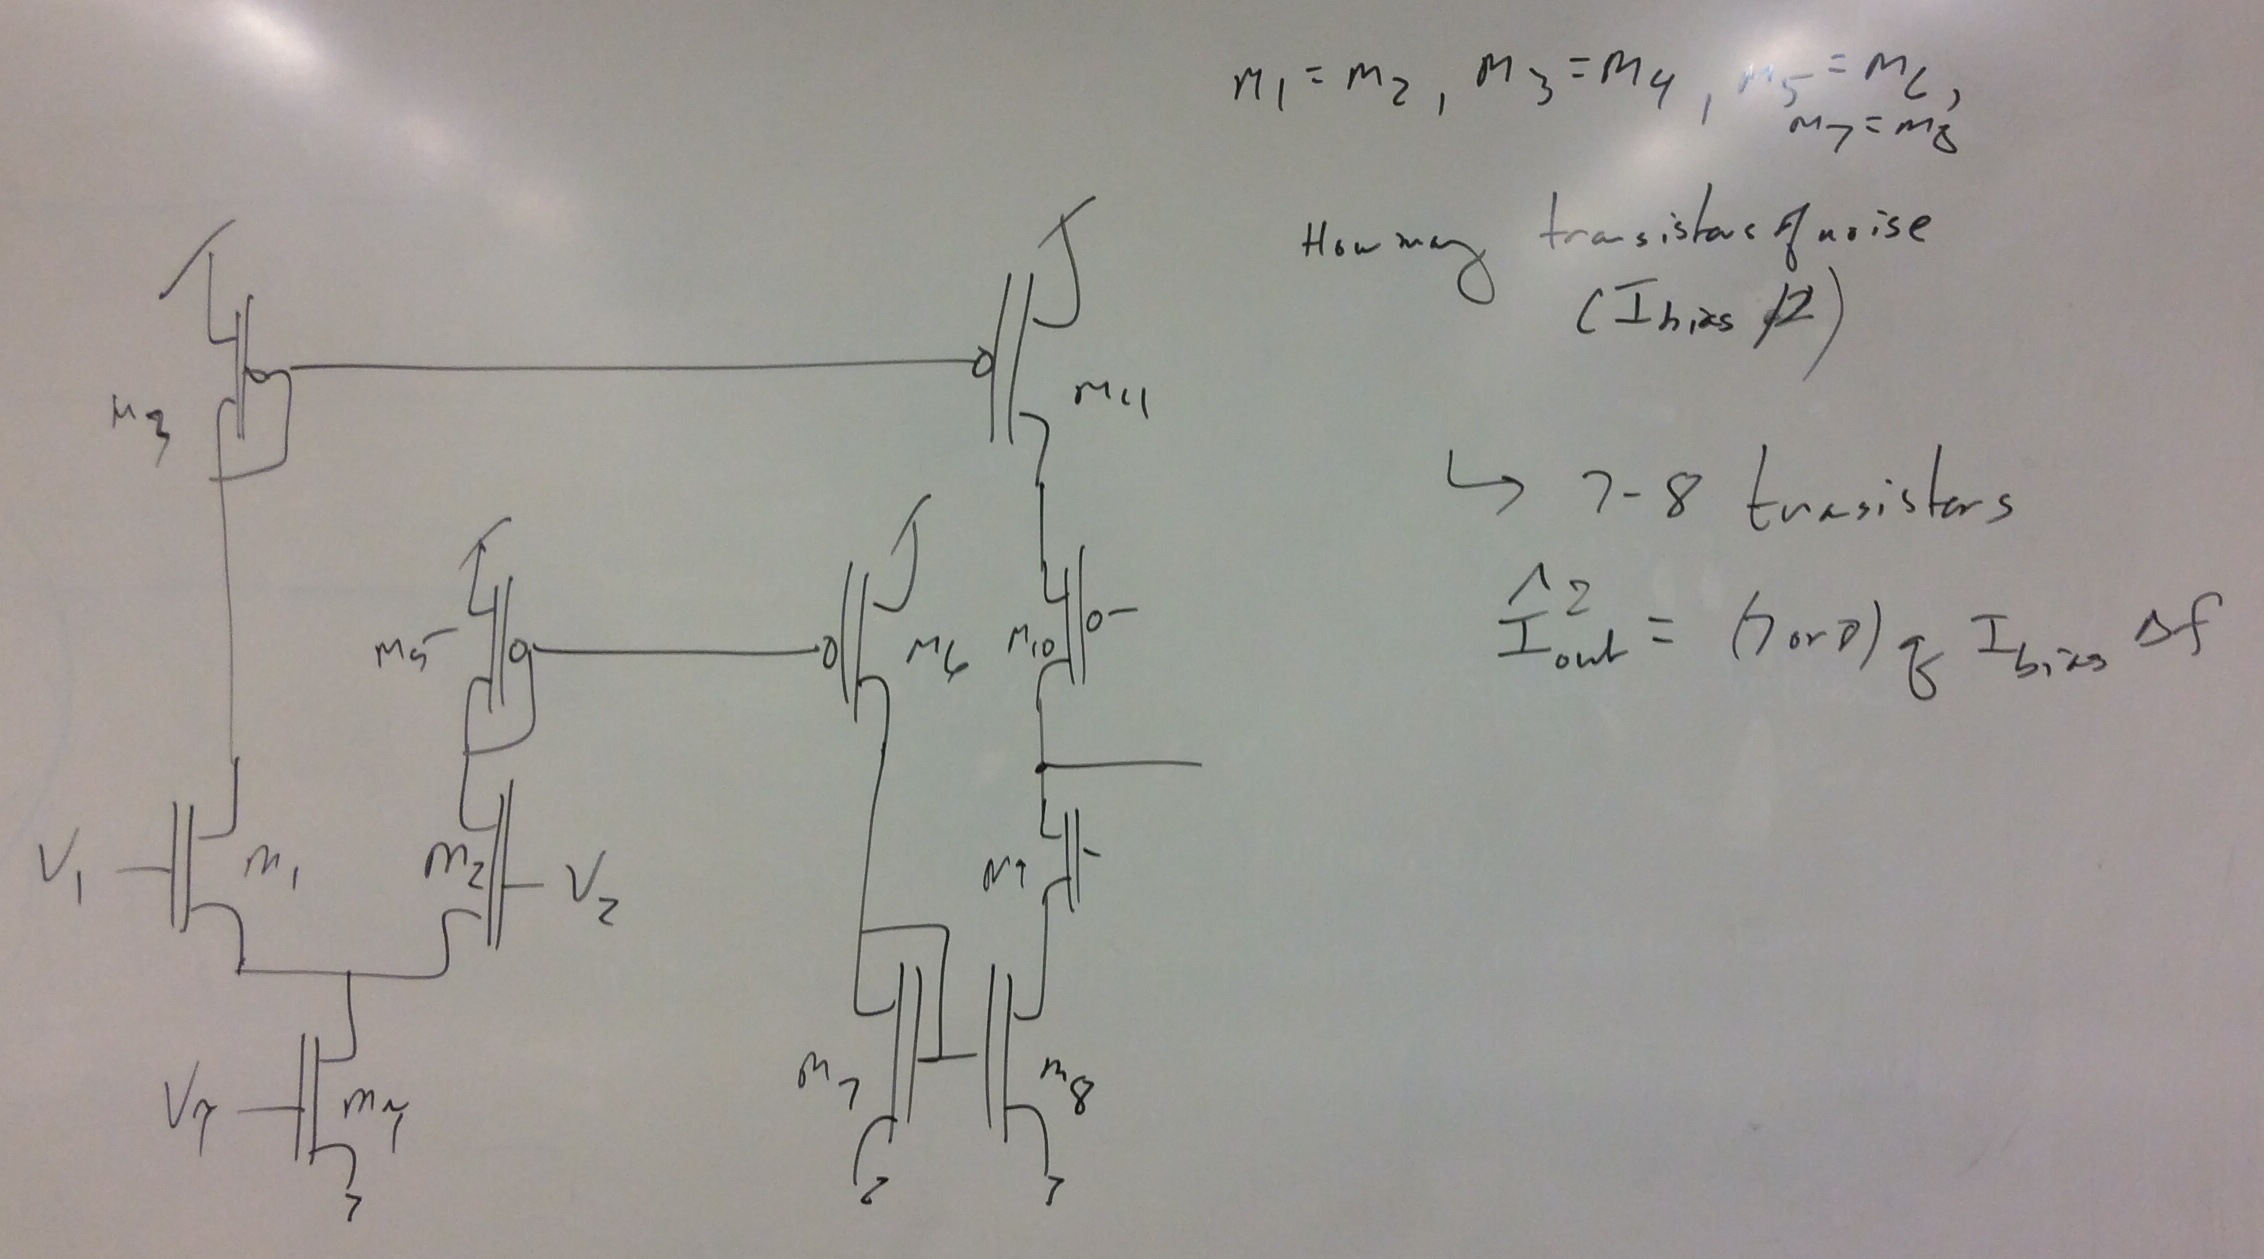 M1 = M2, M3 = M4, M5 = M6,
M7 = M8
How many transistors of noise
(Ibias /2)
↳ 7-8 transistors
Îout² = (7 or 8) q Ibias Δf
M3
M11
M5
M6
M10
V1
M1
M2
V2
M9
M7
M8